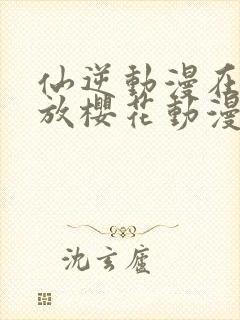 仙逆動漫在
放櫻花動漫
沈玄廬